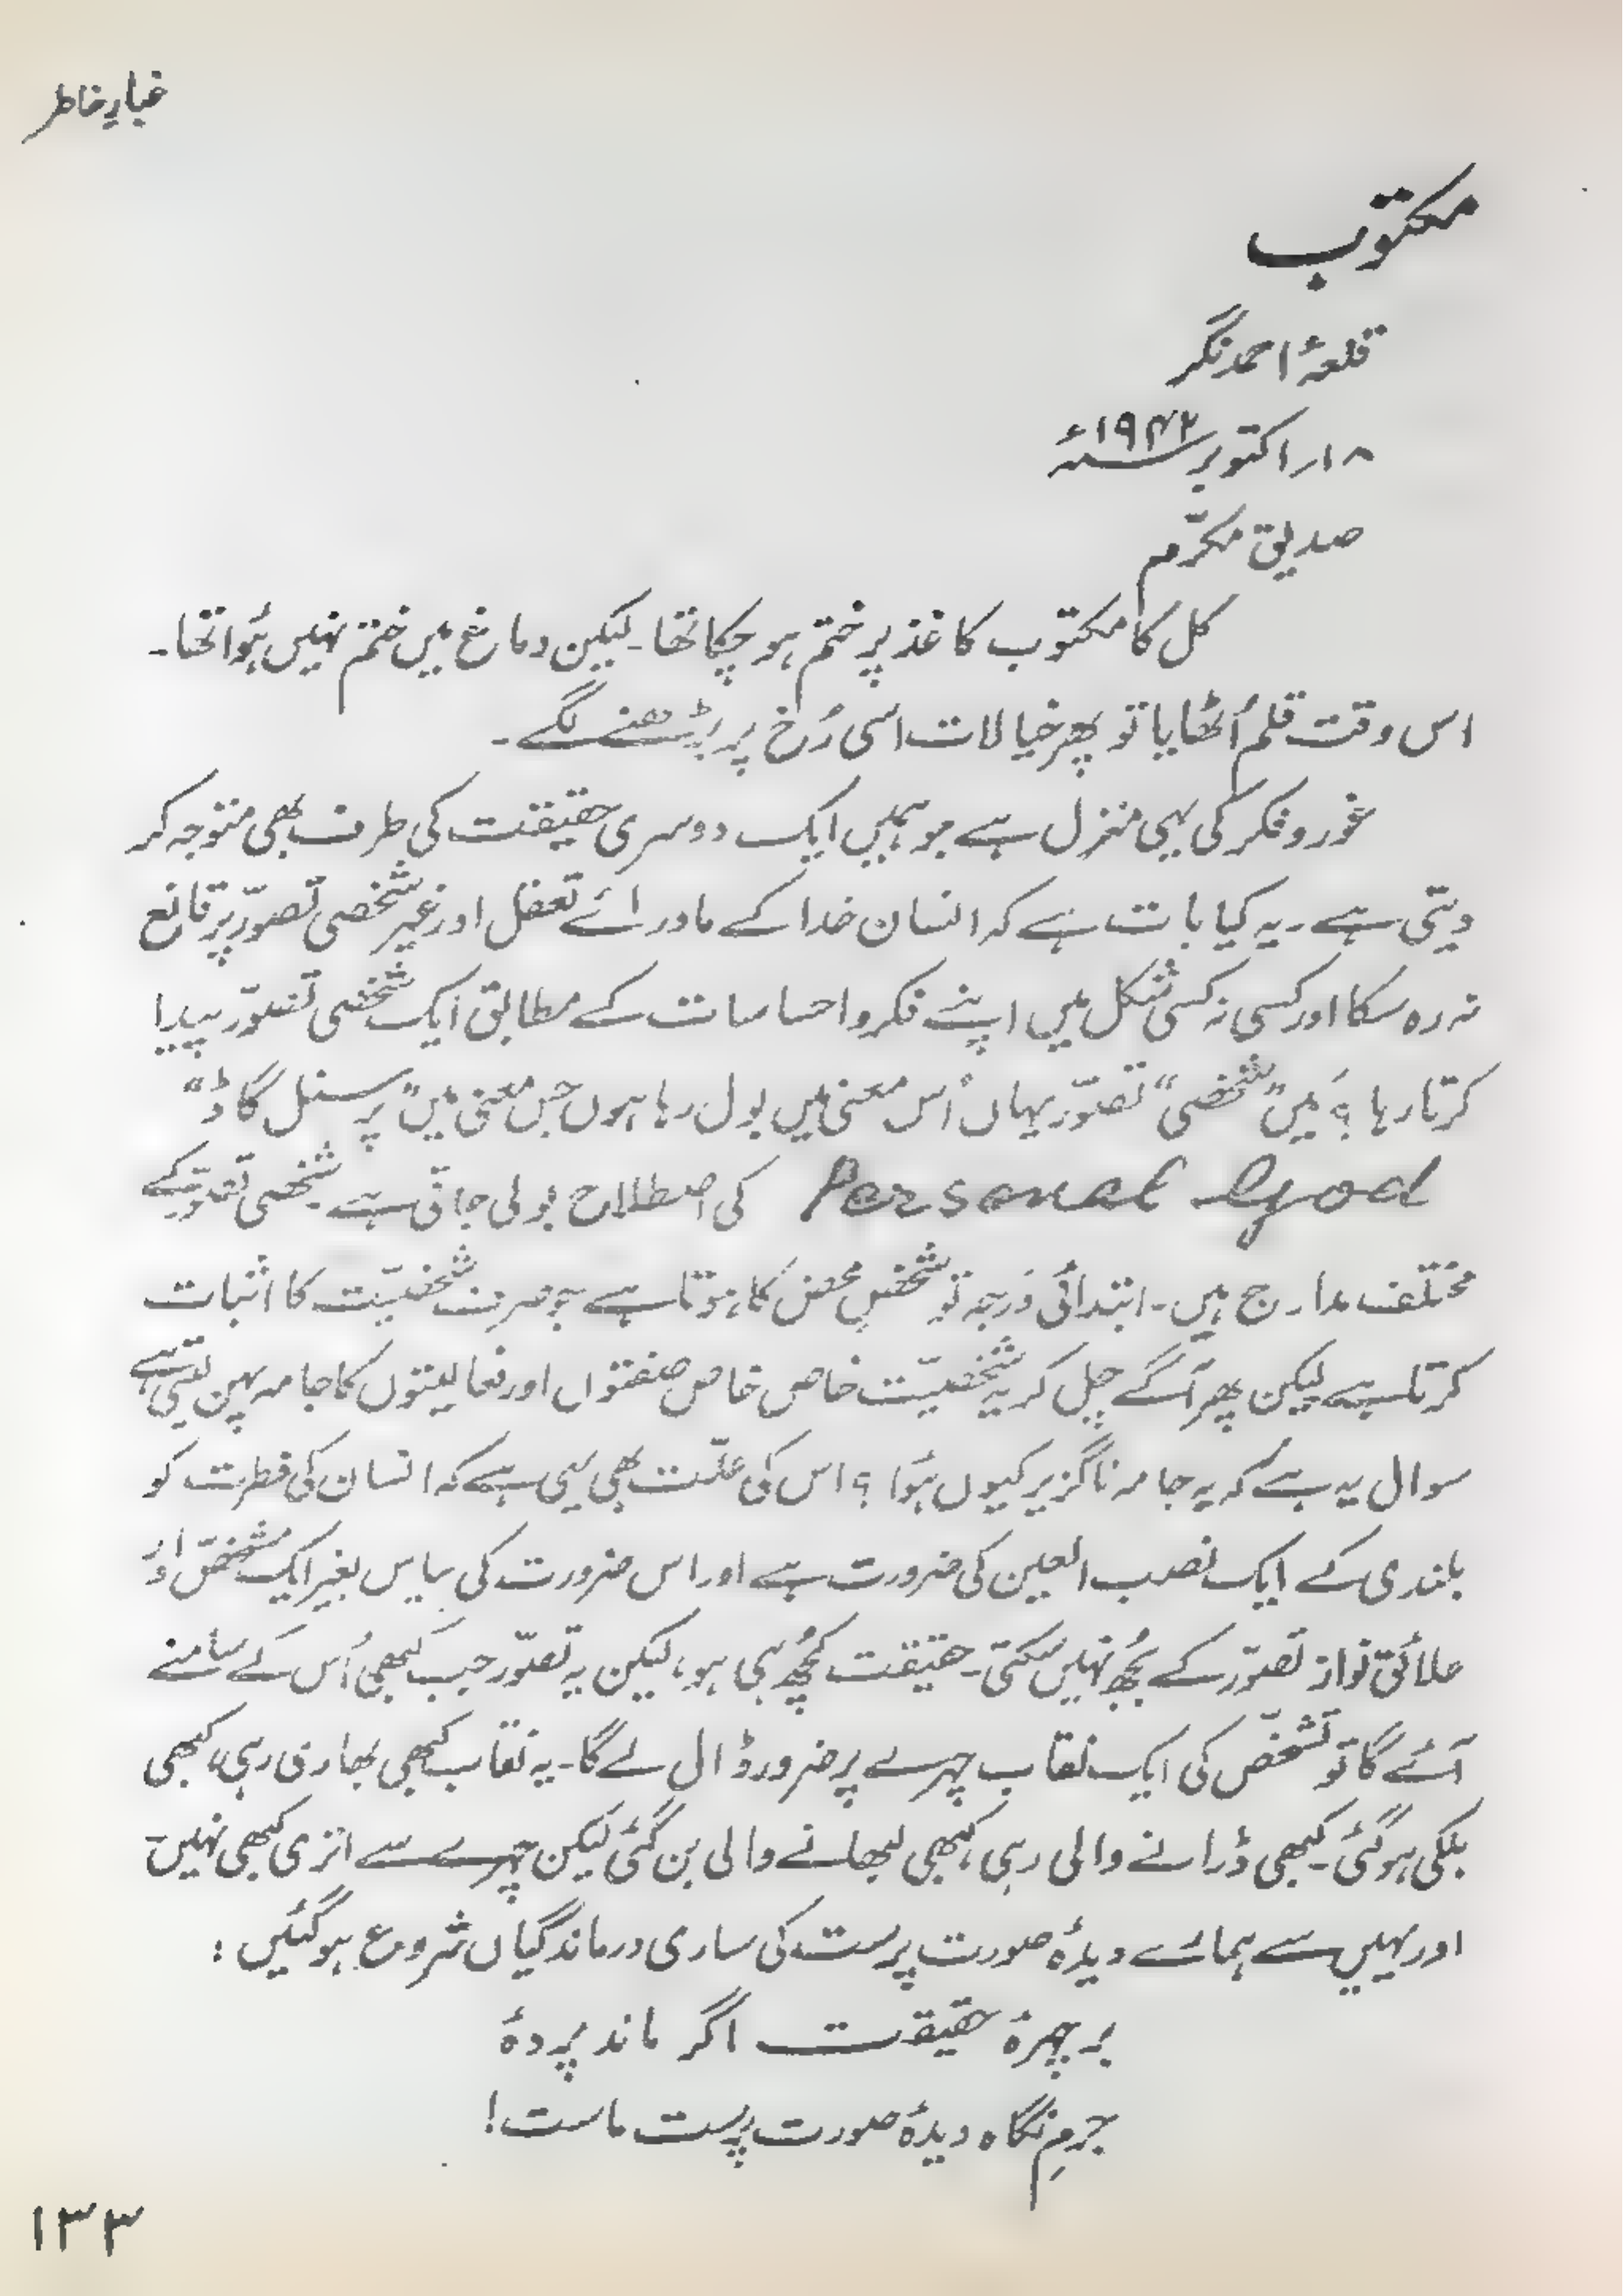 غبارِ خاطر
مکتوب
قلعۂ احمد نگر
۱۸؍ اکتوبر ۱۹۴۲ء
صدیق مکرّم
کل کا مکتوب کاغذ پر ختم ہو چکا تھا۔ لیکن دماغ میں ختم نہیں ہُوا تھا۔
اس وقت قلم اُٹھایا تو پھر خیالات اسی رُخ پر بڑھنے لگے۔
غور و فکر کی یہی منزل ہے جو ہمیں ایک دوسری حقیقت کی طرف بھی متوجہ کر
دیتی ہے۔ یہ کیا بات ہے کہ انسان خدا کے ماورائے تعقل اور غیر شخصی تصوّر پر قانع
نہ رہ سکا اور کسی نہ کسی شکل میں اپنے فکر و احساسات کے مطابق ایک شخصی تصوّر پیدا
کرتا رہا ؟ مَیں ”شخصی“ تصوّر یہاں اُس معنی میں بول رہا ہوں جس معنی میں ”پرسنل گاڈ“
Personal God کی اصطلاح بولی جاتی ہے۔ شخصی تصوّر کے
مختلف مدارج ہیں۔ ابتدائی درجہ تو شخصِ محض کا ہوتا ہے جو صرف شخصیّت کا اثبات
کرتا ہے لیکن پھر آگے چل کر یہ شخصیّت خاص خاص صفتوں اور فعالیتوں کا جامہ پہن لیتی ہے
سوال یہ ہے کہ یہ جامہ ناگزیر کیوں ہُوا ؟ اس کی علّت بھی یہی ہے کہ انسان کی فطرت کو
بلندی کے ایک نصب العین کی ضرورت ہے اور اس ضرورت کی پیاس بغیر ایک مشخّص اور
علائق نواز تصوّر کے بُجھ نہیں سکتی۔ حقیقت کچھ ہی ہو، لیکن یہ تصوّر جب کبھی اُس کے سامنے
آئے گا تو تشخّص کی ایک نقاب چہرے پر ضرور ڈال لے گا۔ یہ نقاب کبھی بھاری رہی، کبھی
ہلکی ہو گئی۔ کبھی ڈرانے والی رہی، کبھی لبھانے والی بن گئی لیکن چہرے سے اتری کبھی نہیں۔
اور یہیں سے ہمارے دیدۂ صورت پرست کی ساری درماندگیاں شروع ہو گئیں :
بر چہرۂ حقیقت اگر ماند پردۂ
جرمِ نگاہ دیدۂ صورت پرست ماست!
۱۳۳